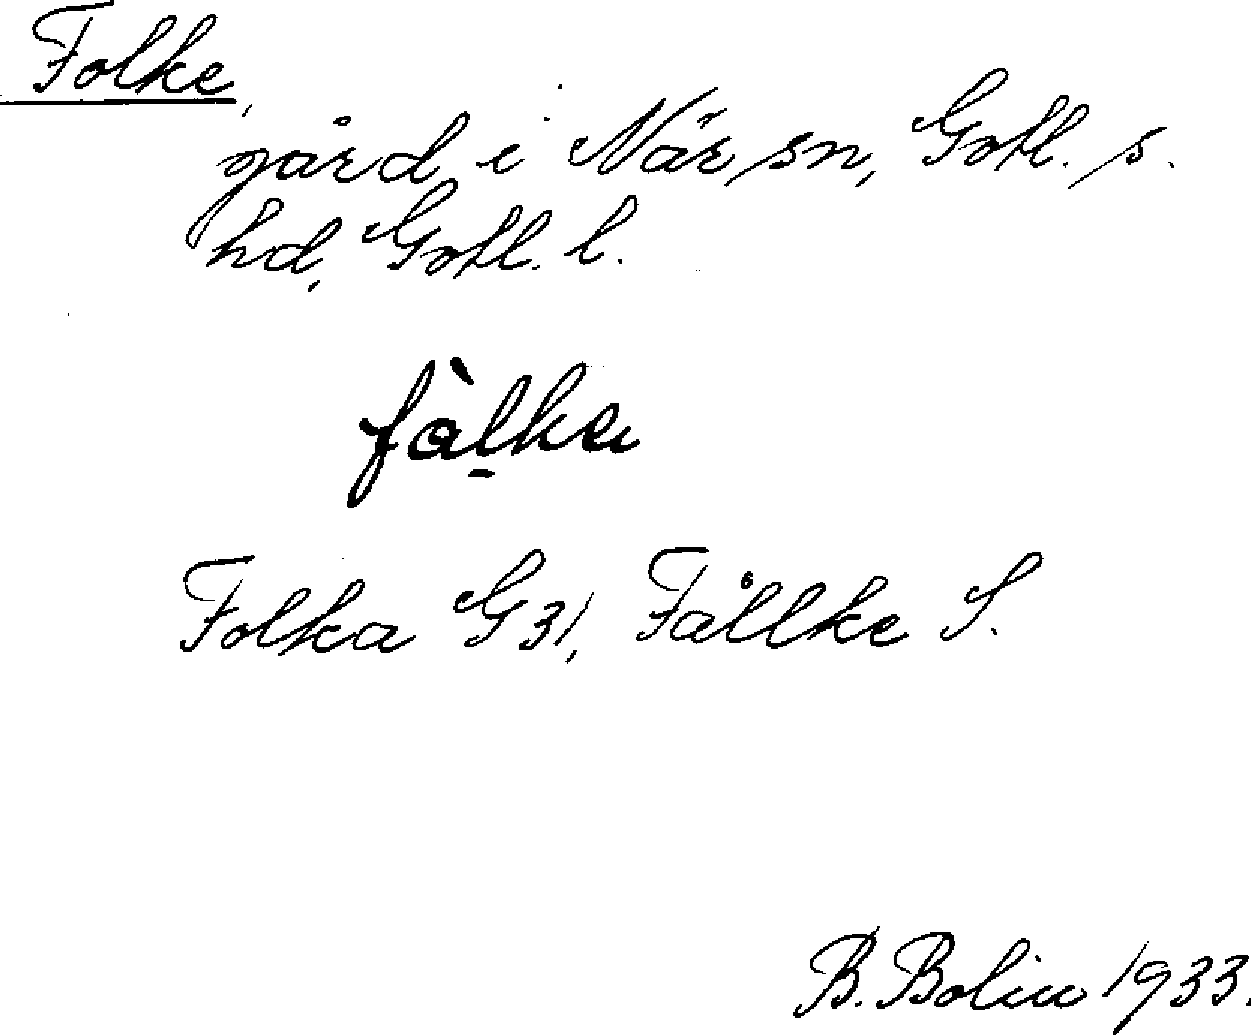 Folke,
gård i När sn, Gotl. s.
hd, Gotl. l.
fàl̠ka
Folka G31, Fållke S.
B. Bolin 1933.